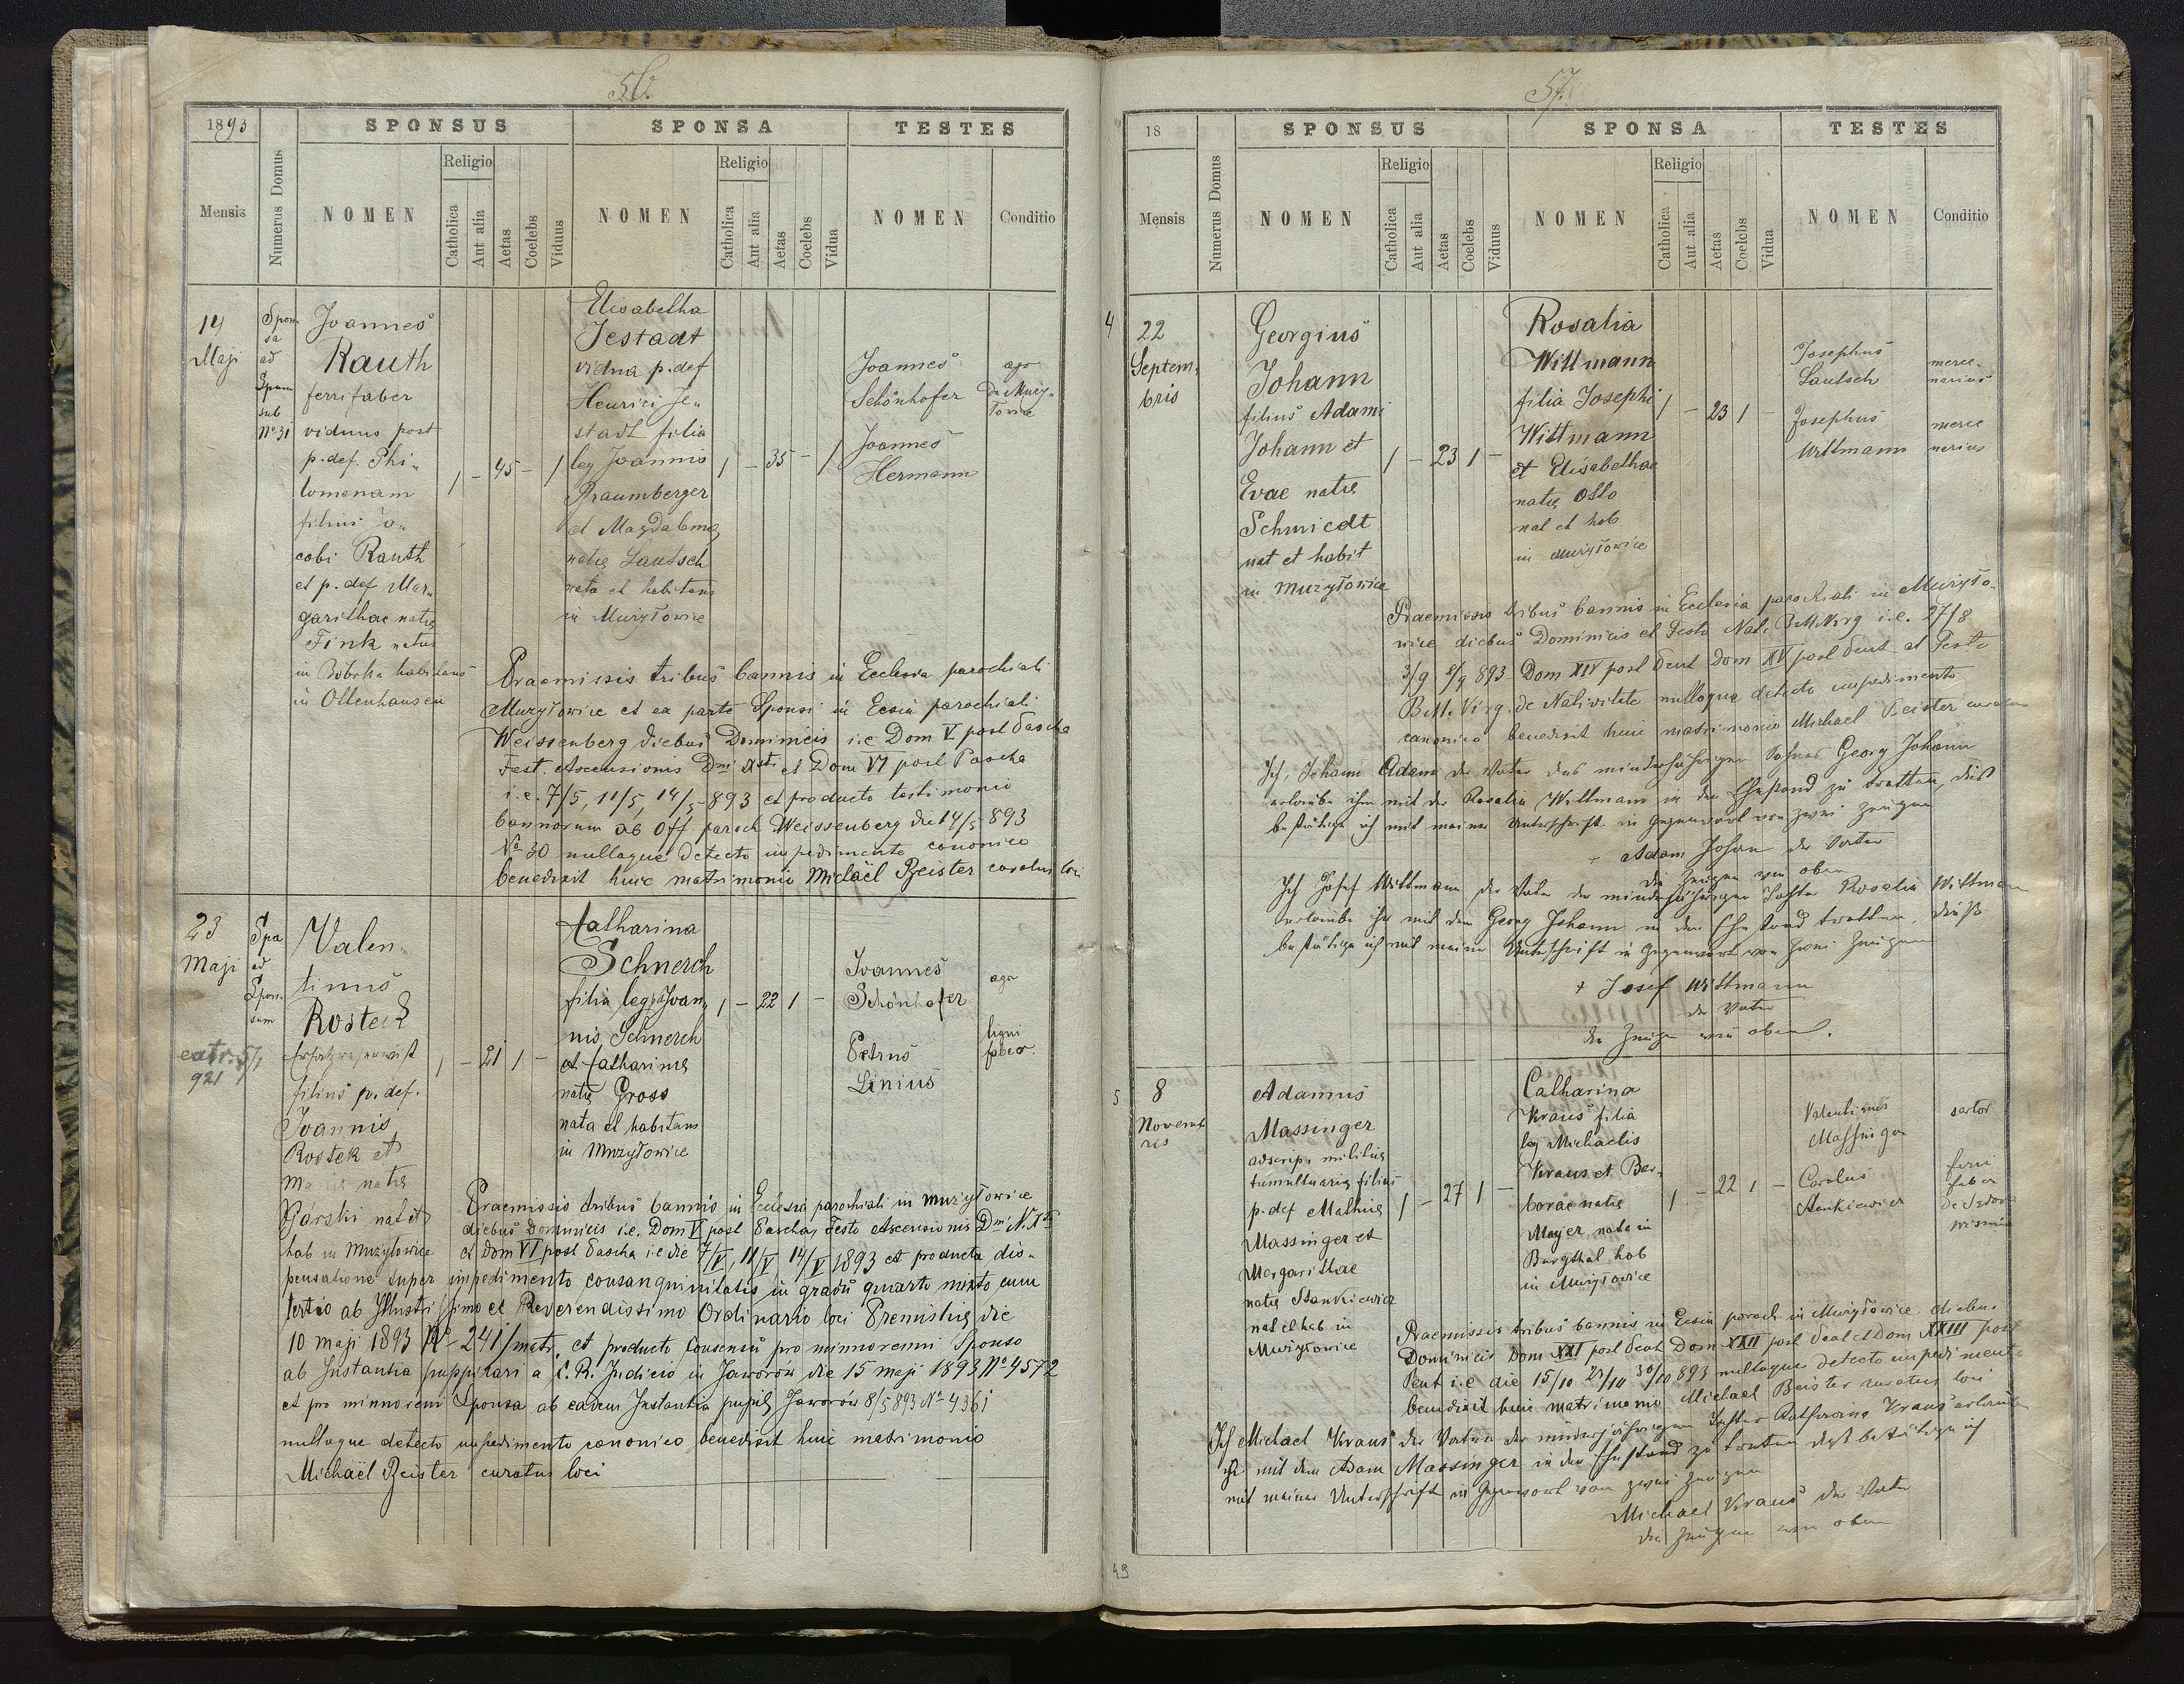 56.
1893
SPONSUS
SPONSA
TESTES
Mensis
Numerus Domus
NOMEN
Religio
Catholica
Aut alia
Aetas
Coelebs
Viduus
NOMEN
Religio
Catholica
Aut alia
Aetas
Coelebs
Vidua
NOMEN
Conditio
14
Maji
Spon-
sa
ad
Spum
sub
No 31
Joannes
Rauth
ferrifaber
viduus post
p. def. Phi„
lomenam
filius Ja„
cobi Rauth
et p. def Mar„
garithae natę
Fink natus
in Bóbrka habitans
in Ottenhausen
1 – 45 – 1
Elisabetha
Jestadt
vidua p. def
Henrici Je„
stadt filia
leg Joannis
Praumberger
et Magdalenę
natę Lautsch
nata et habitans
in Mużyłowice
1 – 35 – 1
Joannes
Schönhofer
Joannes
Hermann
agr
de Muży„
łowice
Praemissis tribus bannis in Ecclesia parochiali
Mużyłowice et ex parte Sponsi in Ecsia parochiali
Weissenberg diebus Dominicis i.e Dom V post Pascha
Fest. Ascensionis Dni Xsti et Dom VI post Pascha
i.e. 7/5, 11/5, 14/5 893 et producto testimonio
bannorum ab Off paroch Weissenberg die 14/5 893
No 30 nulloque detecto impedimento canonico
benedixit huic matrimonio Michaël Beister curatus loci
23
Maji
Spa
ad
Spon-
sum
extr. 5/1
921
Valen„
tinus
Rostek
Ersatzreservist
filius p. def.
Joannis
Rostek et
natę
Górski nat et
hab in Mużyłowice
1 – 21 1 –
Catharina
Schnerch
filia leg Joan„
nis Schnerch
et Catharinę
natę Gross
nata et habitans
in Mużyłowice
1 – 22 1 –
Joannes
Schönhofer
Petrus
Linius
agr
ligni
faber.
Praemissis tribus bannis in Ecclesia parochiali in Mużyłowice
diebus Dominicis i.e. Dom V post Pascha, Festo Ascensionis Dni N. Xsti
et Dom VI post Pascha i.e die 7/V, 11/V 14/V 1893 et producta dis„
pensatione super impedimento consanguinitatis in gradu quarto mixto cum
tertio ab Illustrissimo et Reverendissimo Ordinario loci Premislię die
10 maji 1893 No 241/matr. et producto consensu pro minnorenni Sponso
ab Instantia puppillari a C. R. Judicio in Jaworów die 15 maji 1893 No 4572
et pro minnoreni Sponsa ab eadem Instantia pupill Jaworów 8/5 893 No 4361
nulloque detecto impedimento canonico benedixit huic matrimonio
Michaël Beister curatus loci
57.
18
SPONSUS
SPONSA
TESTES
Mensis
Numerus Domus
NOMEN
Religio
Catholica
Aut alia
Aetas
Coelebs
Viduus
NOMEN
Religio
Catholica
Aut alia
Aetas
Coelebs
Vidua
NOMEN
Conditio
4
22
Septem„
bris
Georgius
Johann
filius Adami
Johann et
Evae natę
Schmiedt
nat et habit
in Mużyłowice
1 – 23 1 –
Rosalia
Wittmann
filia Josephi
Wittmann
et Elisabethae
natę Otto
nat et hab
in Mużyłowice
1 – 23 1
Josephus
Lautsch
Josephus
Wittmann
merce-
narius
merce
narius
Praemissis tribus bannis in Ecclesia parochiali in Mużyło„
wice diebus Dominicis et Festo Nat. B.M.Virg i.e. 27/8
3/9 8/9 893 Dom XIV post Pent Dom XV post Pent et Feste
B.M. Virg. de Nativitate nulloque detecto impedimento
canonico benedixit huic matrimonio Michael Beister curatus
Ich, Johann Adam der Vater des minderjährigen Sohnes Georg Johann
erlaube ihm mit der Rosalia Wittmann in den Ehestand zu tretten, dieß
bestätige ich mit meiner Unterschrift in Gegenwart von zwei Zeugen
+ Adam Johan der Vater
die Zeugen wie oben
Ich Josef Wittmann der Vater der minderjährigen Tochter Rosalia Wittmann
erlaube ihr mit dem Georg Johann in den Ehestand tretten, dieß
bestätige ich mit meiner Unterschrift in Gegenwart von zwei Zeugen
+ Josef Wittmann
der Vater
die Zeugen wie oben.
5
8
Novemb
ris
Adamus
Massinger
adscrip. militię
tumultuarię filius
p. def Mathię
Massinger et
Margarithae
natę Stankiewicz
nat et hab in
Mużyłowice
1 – 27 1 –
Catharina
Kraus filia
leg Michaelis
Kraus et Bar„
barae natę
Mayer nata in
Burgthal hab
in Mużyłowice
1 – 22 1 –
Valentinus
Massinger
Carolus
Stankiewicz
sartor
ferri
faber
Praemissis tribus bannis in Ecsia paroch in Mużyłowice diebus
Dominicis Dom XXI post Pent Dom XXII post Pent et Dom XXIII post
Pent i.e die 15/10 23/10 30/10 893 nulloque detecto impedimento
benedixit huic matrimonio Michael Beister curatus loci
Ich Michael Kraus der Vater der minderjährigen Tochter Katharina Kraus erlaube
ihr mit dem Adam Massinger in den Ehestand zu tretten dieß bestätige ich
mit meiner Unterschrift in Gegenwart von zwei Zeugen
Michael Kraus der Vater
die Zeugen wie oben
49